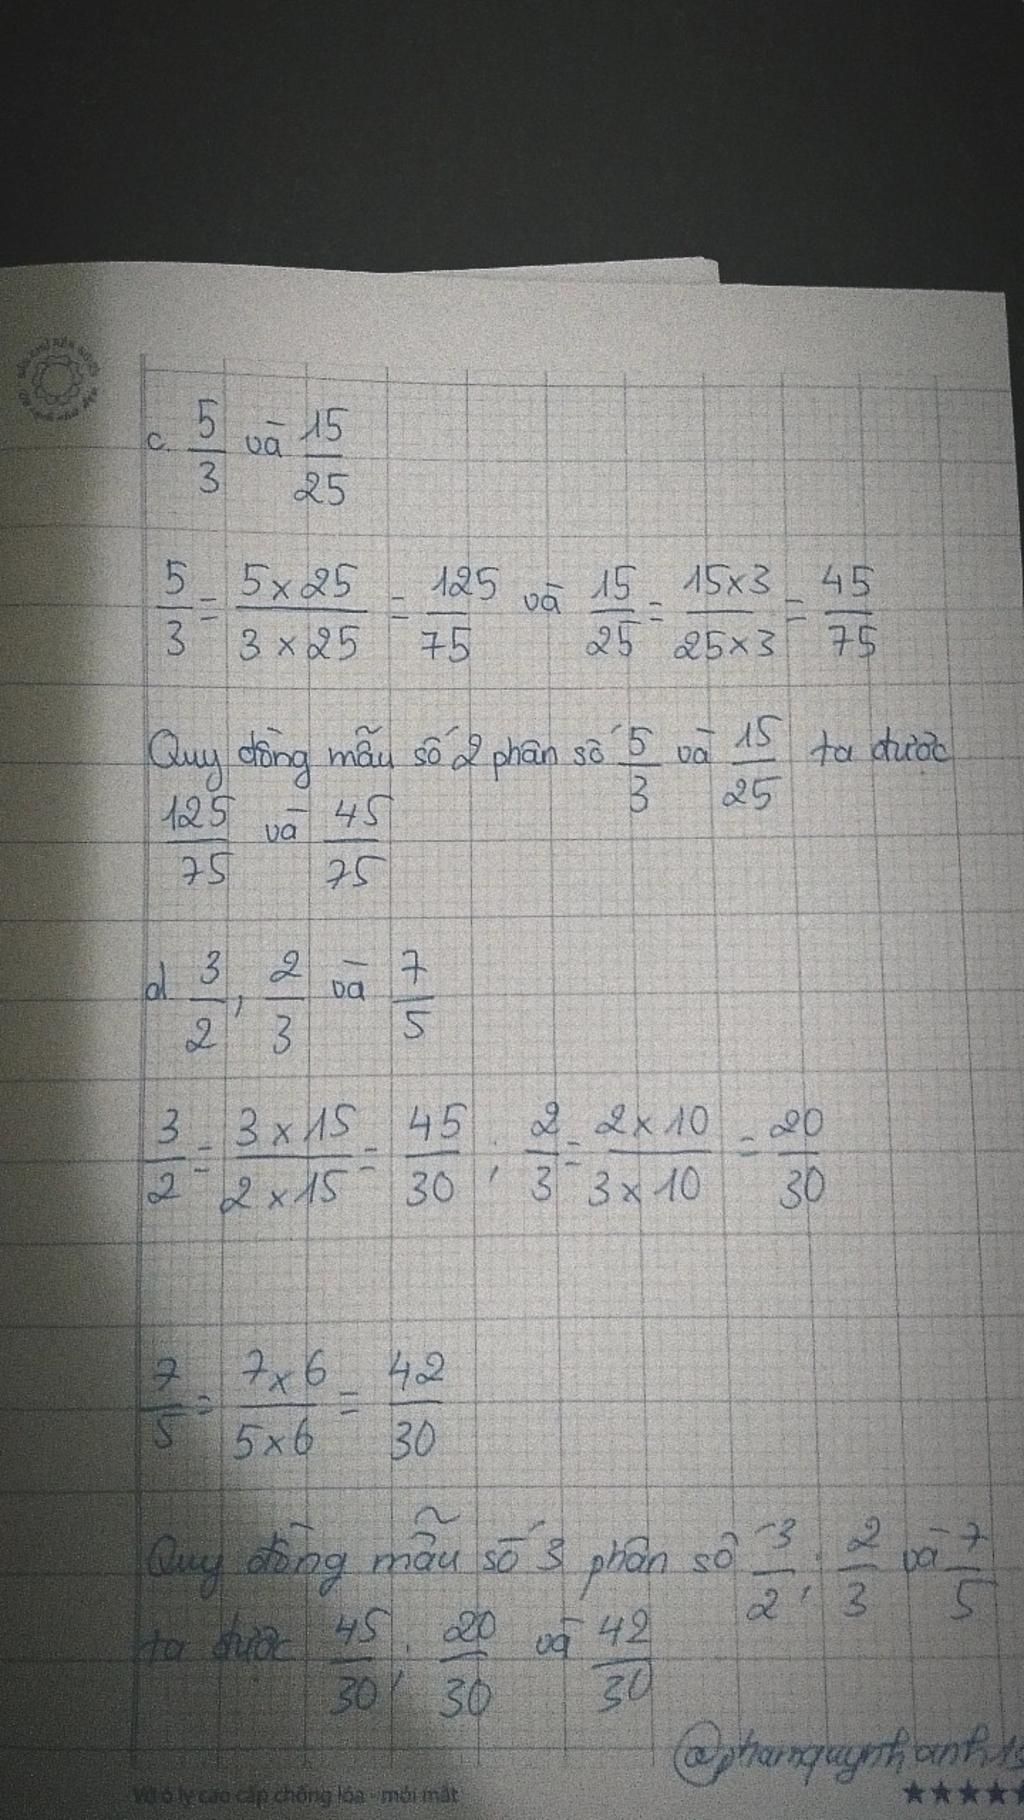 c. 5/3 và 15/25
5/3 = 5x25/3x25 = 125/75 và 15/25 = 15x3/25x3 = 45/75
Quy đồng mẫu số 2 phân số 5/3 và 15/25 ta được
125/75 và 45/75
d 3/2, 2/3 và 7/5
3/2 = 3x15/2x15 = 45/30 ; 2/3 = 2x10/3x10 = 20/30
7/5 = 7x6/5x6 = 42/30
Quy đồng mẫu số 3 phân số 3/2; 2/3 và 7/5
ta được 45/30; 20/30 và 42/30
Vở ô ly cao cấp chống lóa - mỏi mắt